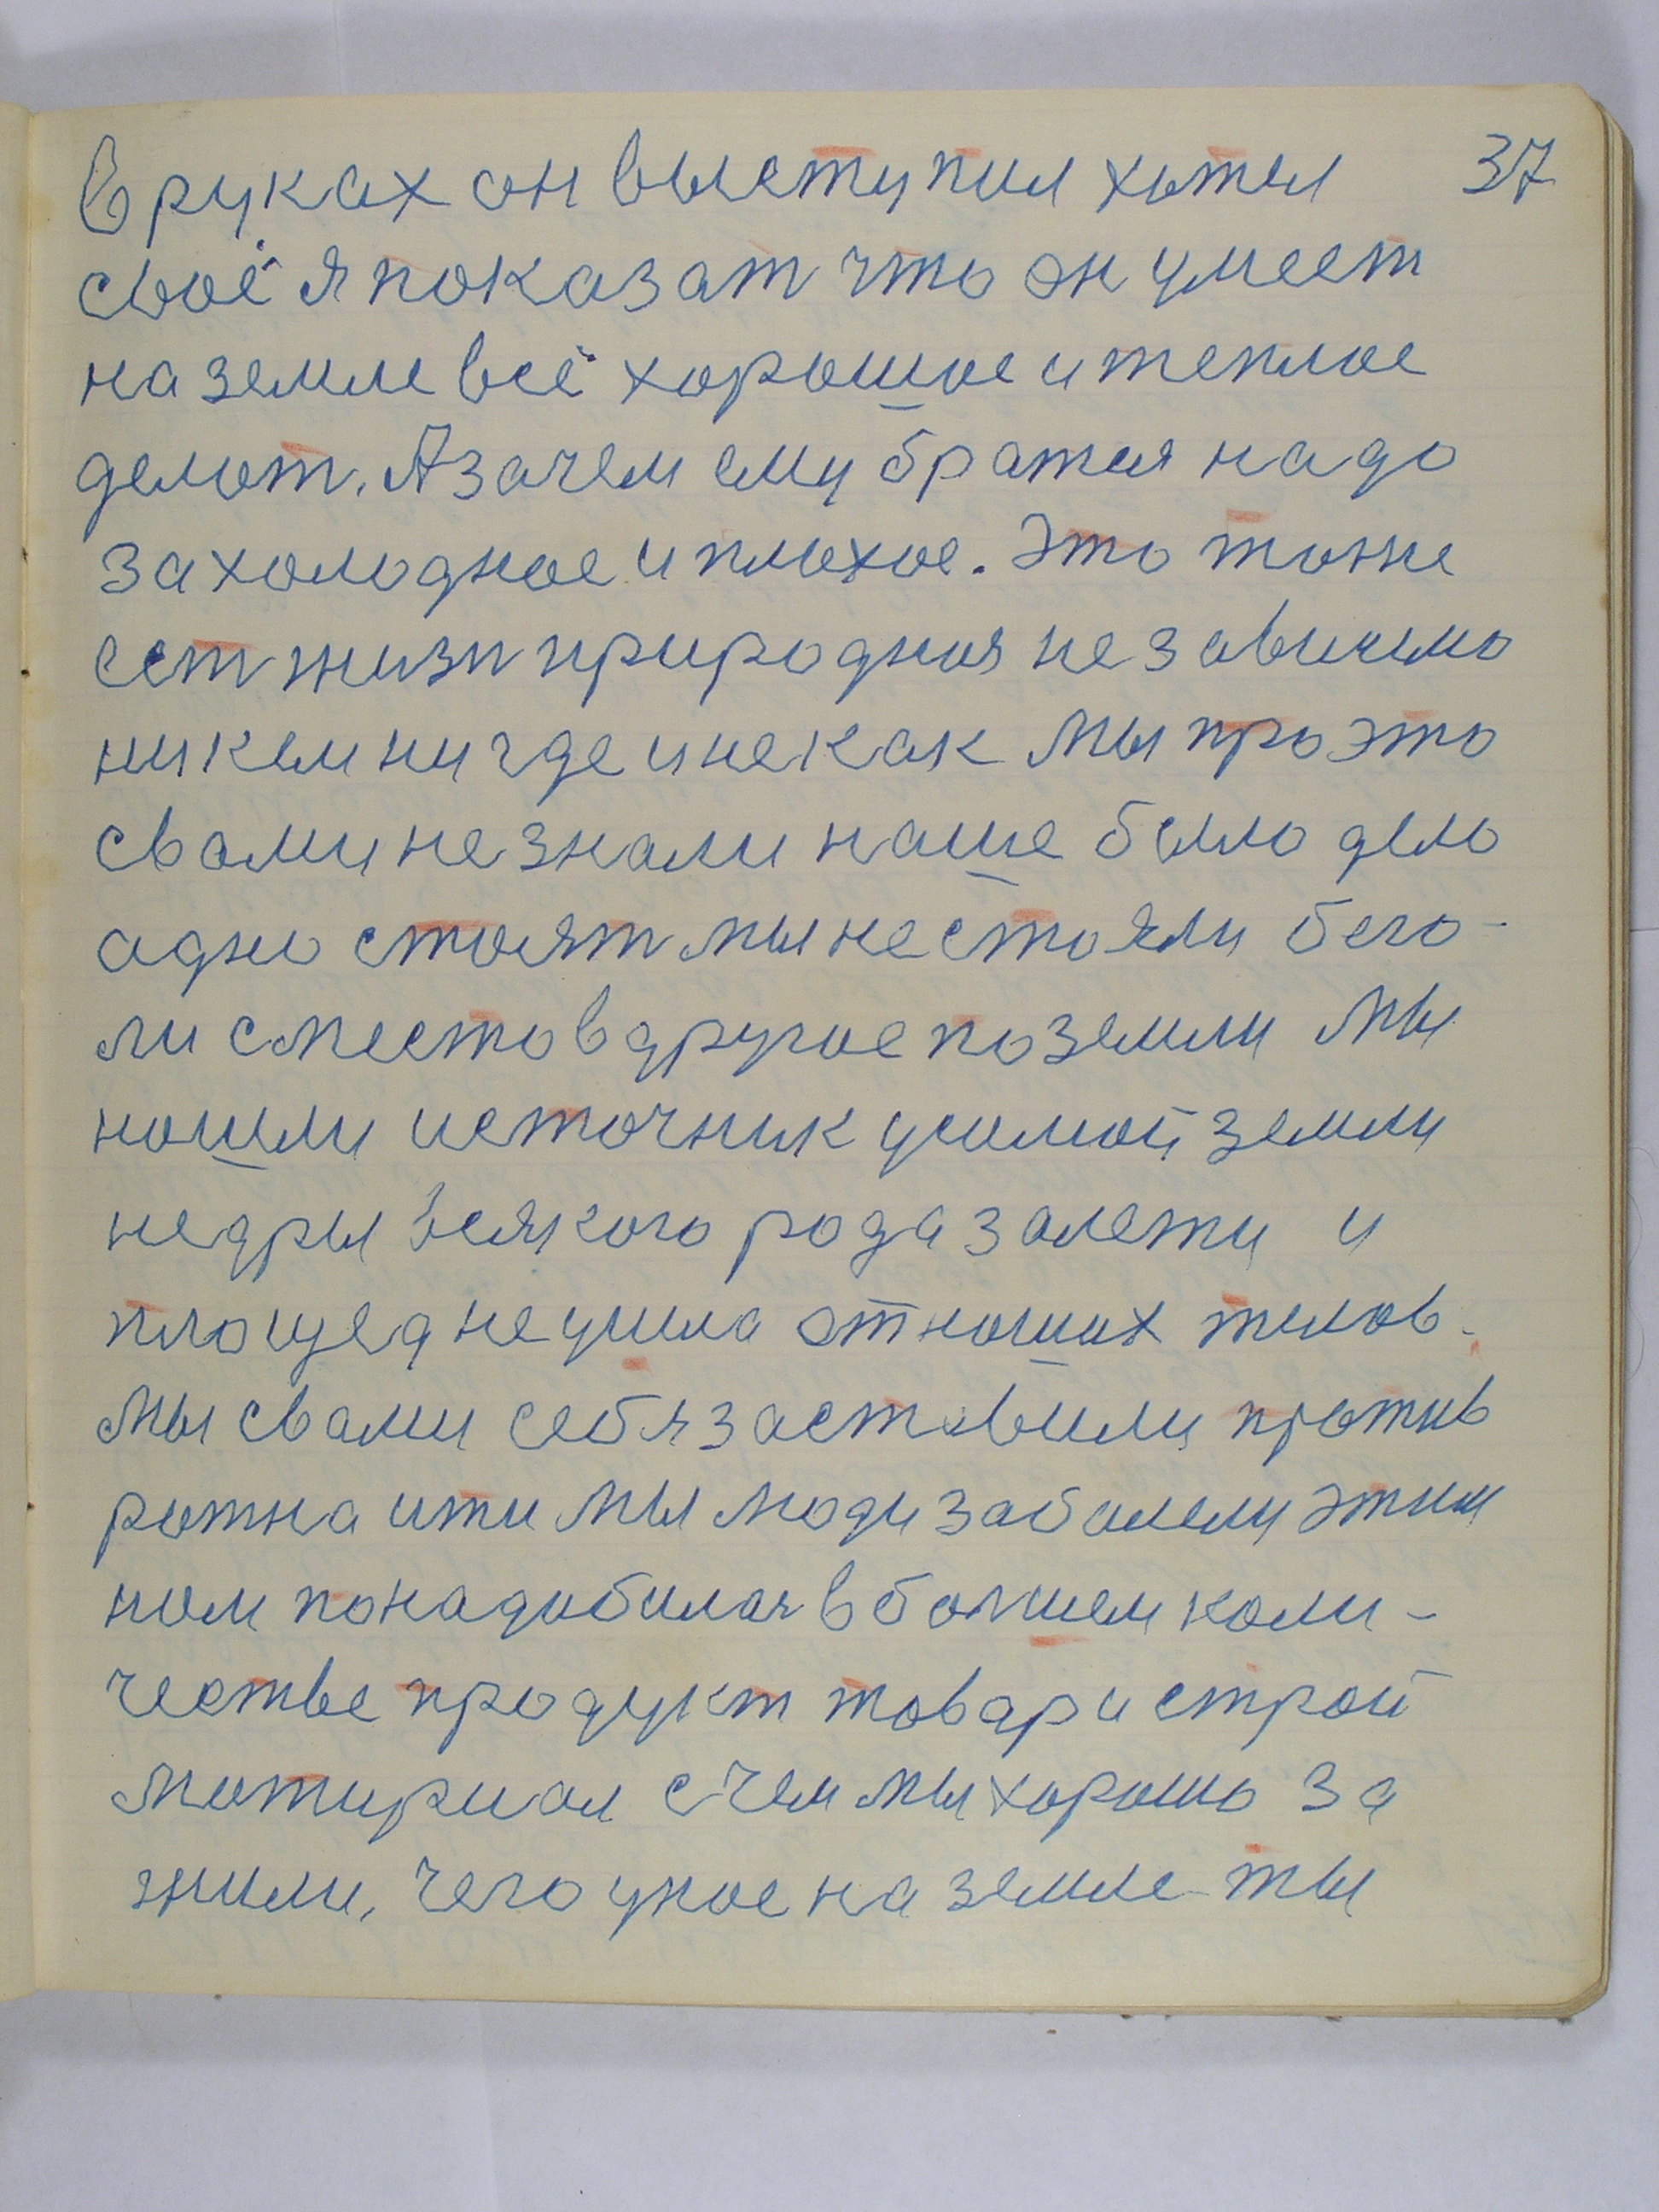 В руках он выступил хотел 37
своё я показат что он умеет
на земле всё хорошое и теплое
делат. А зачем ему братся надо
за холодное и плохое. Это тоже
ест жизн природная независимо
никем ни где и некак Мы про это
свами не знали наше было дело
адно стоят мы не стояли бега-
ли с место в другое по земли Мы
нашли источник усамой земли
недры всякого рода залежи и
площед не ушла от наших телов.
Мы свами себя заставили против
ражна ити мы люди заболели этим
нам понадобилас в болшем коли-
честве продукт товар и строй
матириал с чем мы хорошо за
жили, чего уное на земле ты